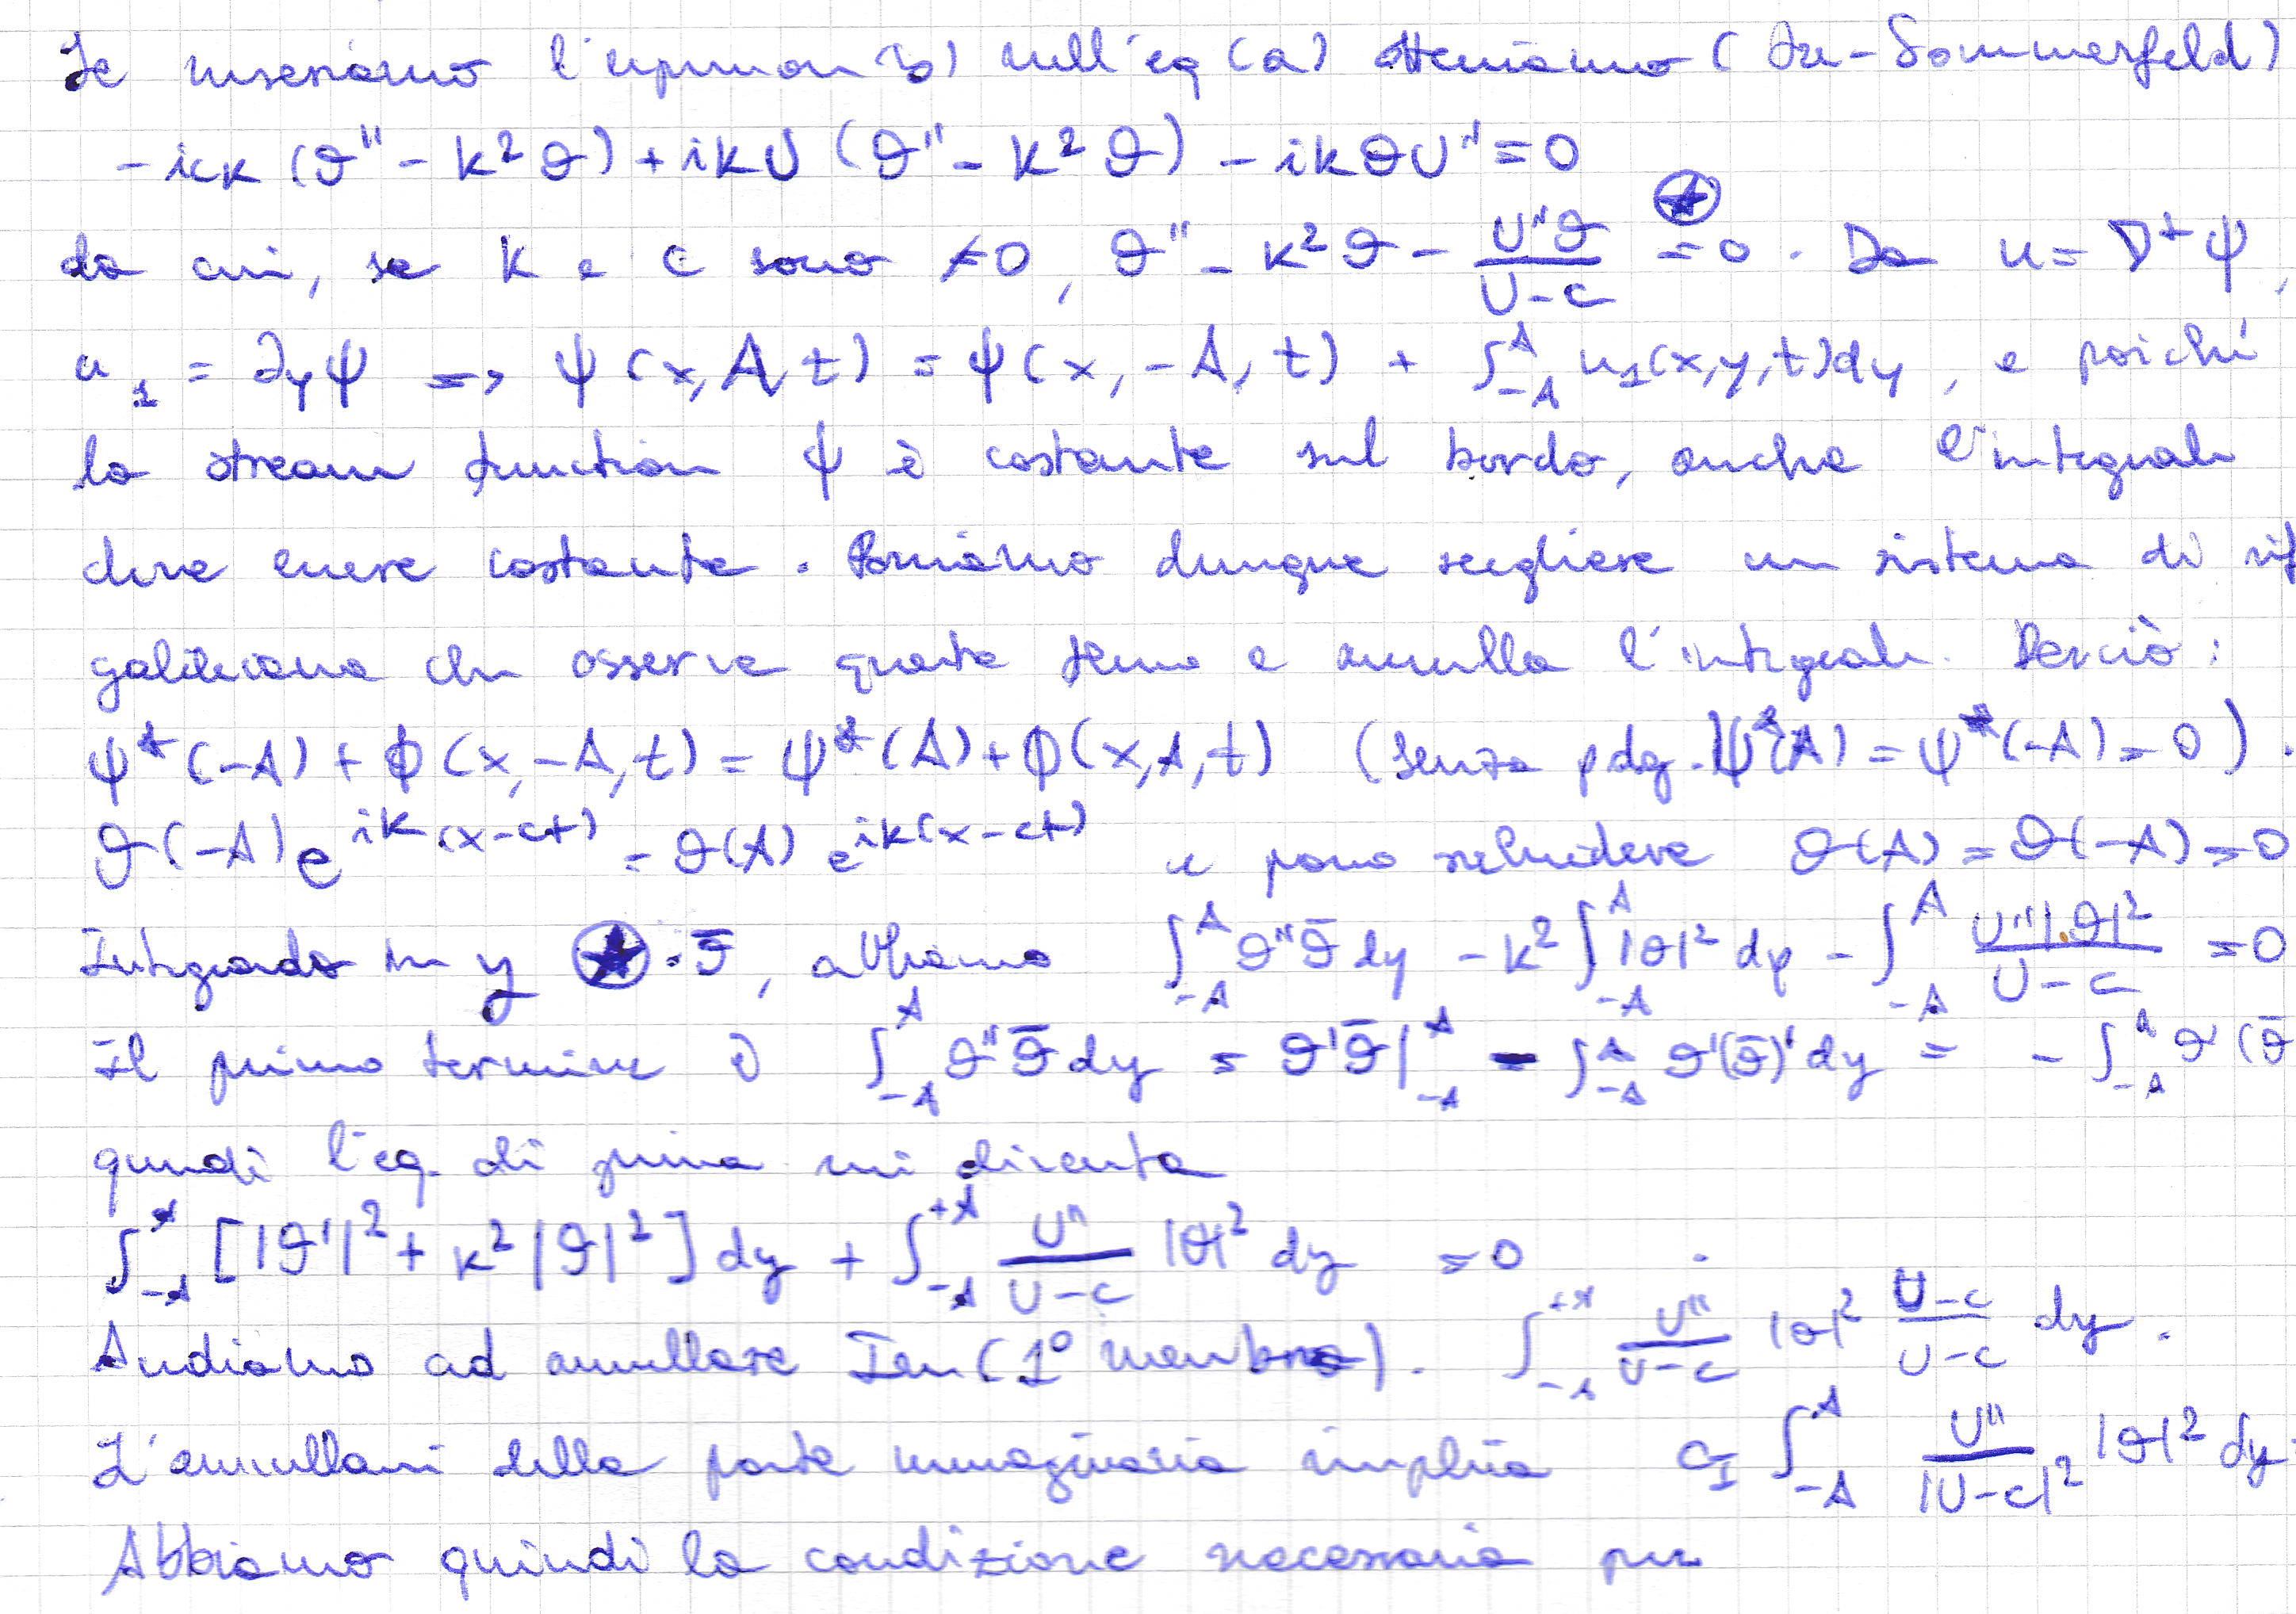 Se inseriamo l'espression b) nell'eq (a) otteniamo ( -Sommerfeld)
-ick (ϑ'' - k² ϑ) + ikU (ϑ'' - k² ϑ) - ikϑU'' = 0
da cui, se k e c sono ≠0, ϑ'' - k² ϑ - U''ϑ / (U-c) = 0 . Da u = ∇^⊥ ψ,
u₁ = ∂yψ => ψ(x,A,t) = ψ(x,-A,t) + ∫_{-A}^{A} u₁(x,y,t)dy, e poiché
la stream function ψ è costante sul bordo, anche l'integrale
deve essere costante. Possiamo dunque scegliere un sistema di rif
galileiano che osserva questo e annulla l'integrale. Perciò :
ψ*(-A) + ϕ(x,-A,t) = ψ*(A) + ϕ(x,A,t) (senza pdg. ψ*(A) = ψ*(-A) = 0) .
ϑ(-A) e^{ik(x-ct)} = ϑ(A) e^{ik(x-ct)} e posso richiedere ϑ(A) = ϑ(-A) = 0
Integrando in y ★ · ϑ̄, abbiamo ∫_{-A}^{A} ϑ''ϑ̄ dy - k² ∫_{-A}^{A} |ϑ|² dy - ∫_{-A}^{A} U''|ϑ|² / (U-c) = 0
Il primo termine è ∫_{-A}^{A} ϑ''ϑ̄ dy = ϑ'ϑ̄ |_{-A}^{A} - ∫_{-A}^{A} ϑ'(ϑ̄)' dy = - ∫_{-A}^{A} ϑ'(ϑ̄
quindi l'eq. di prima mi diventa
∫_{-A}^{A} [|ϑ'|² + k²|ϑ|²] dy + ∫_{-A}^{+A} U'' / (U-c) |ϑ|² dy = 0
Andiamo ad annullare Im(1° membro). ∫_{-A}^{+A} U'' / (U-c) |ϑ|² (U-c) / (U-c) dy .
L'annullarsi della parte immaginaria implica c_I ∫_{-A}^{A} U'' / |U-c|² |ϑ|² dy
Abbiamo quindi la condizione necessaria per